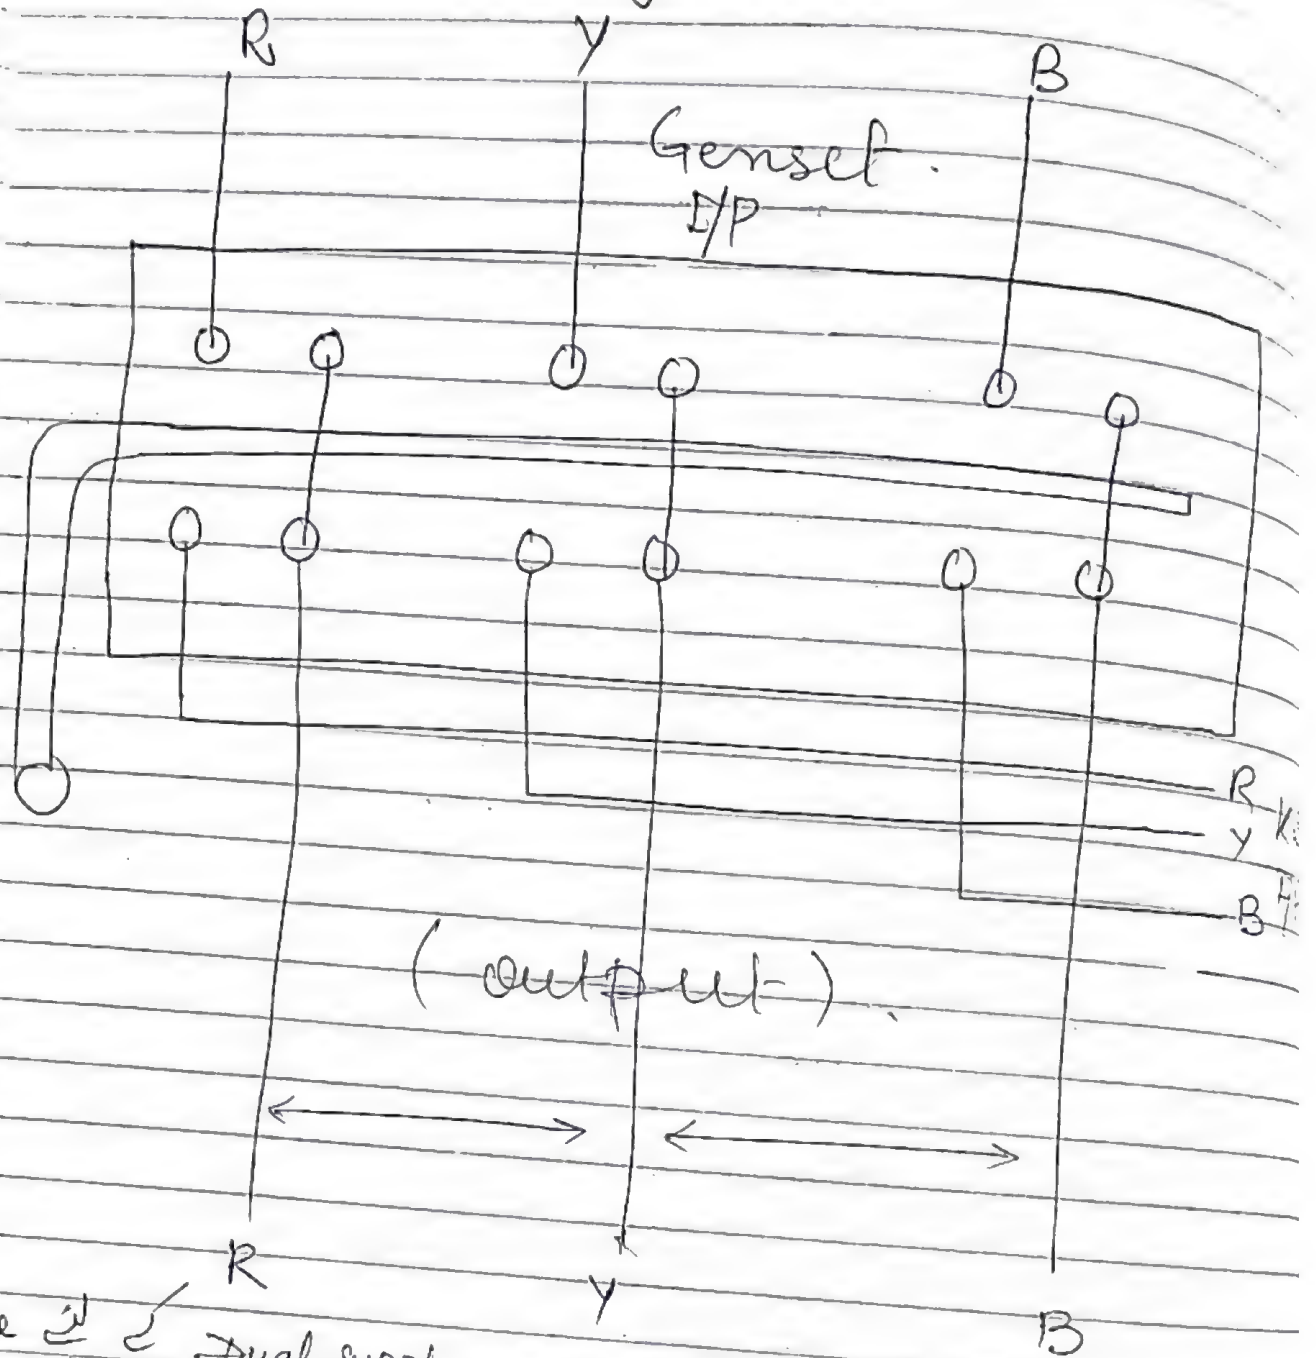 R Y B
Genset.
I/P
R
Y
B
(output).
R Y B
Dual